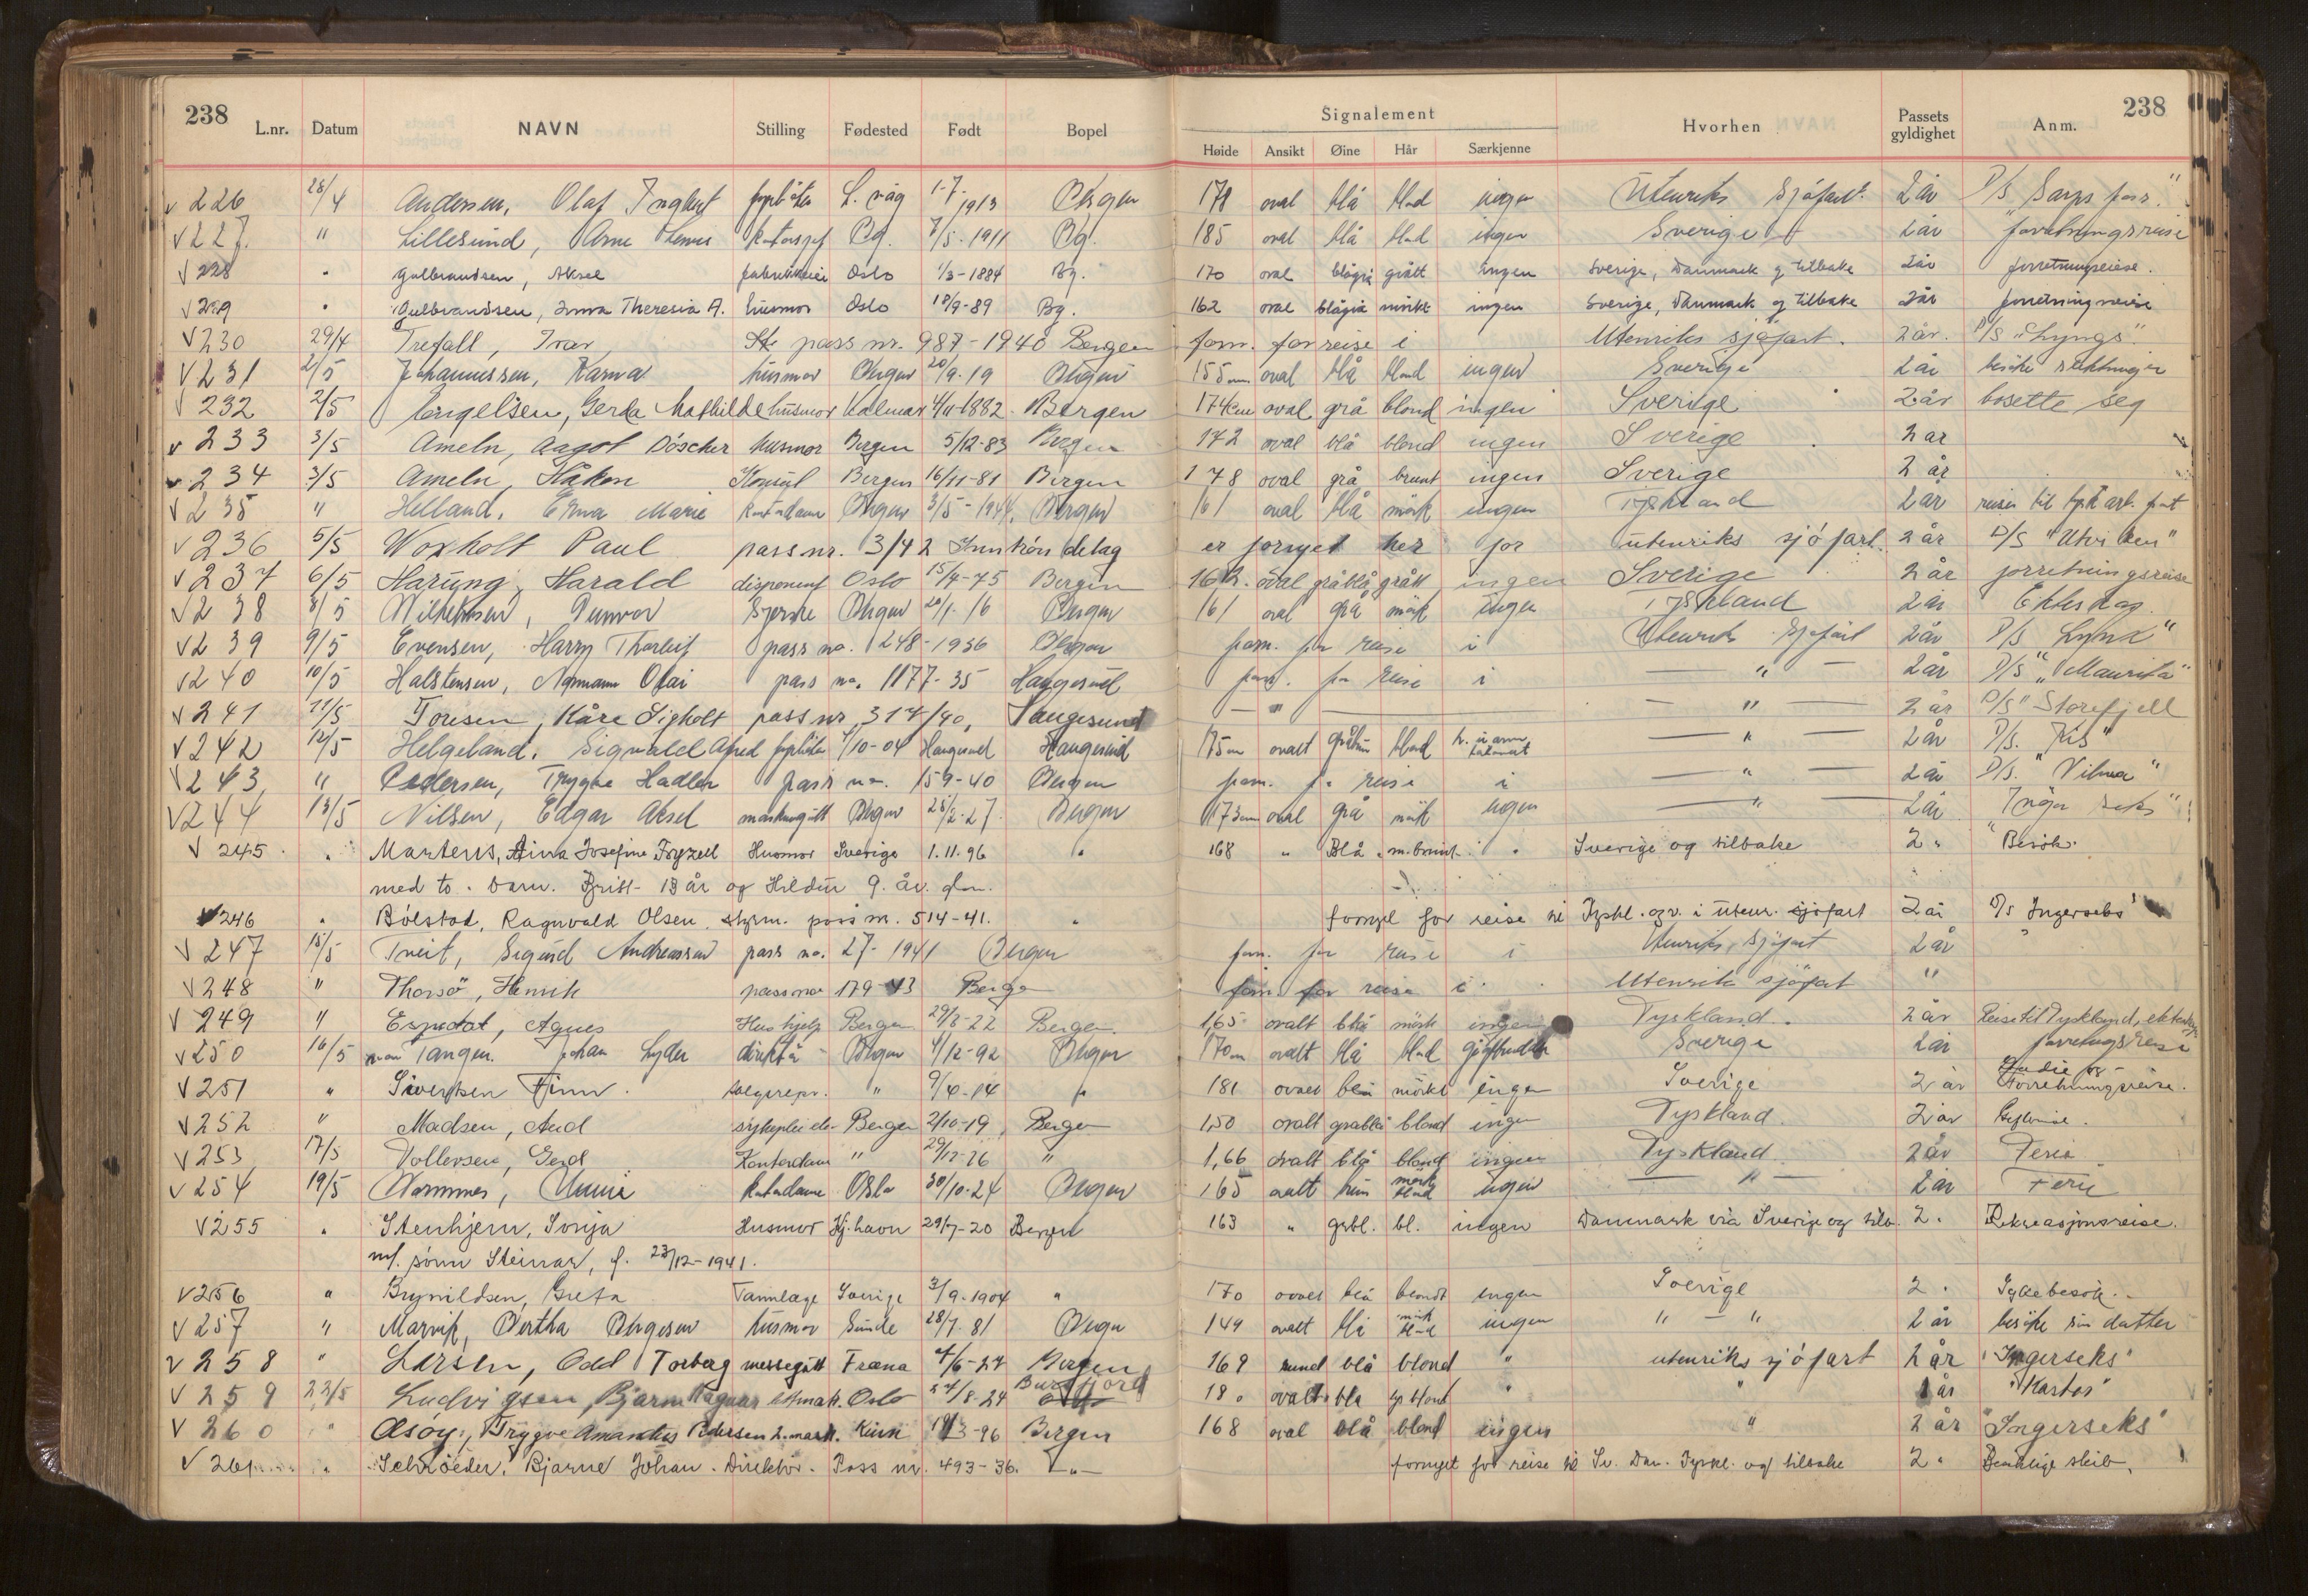 238 238
L.nr. Datum NAVN Stilling Fødested Født Bopel Signalement Hvorhen Passets gyldighet Anm.
Høide Ansikt Øine Hår Særkjenne
226 28/4 Andersen, Olaf 1-7-1913 Bergen 178 oval blå blond ingen Utenriks Sjöfart. 2 år D/S "Sarpfoss"
227 " Lillesund, Arne Bg. 7/5-1911 Bg. 185 oval blå blond ingen Sverige 2 år forretningsreise
228 " Gulbrandsen, Aksel Oslo 1/3-1884 Bg. 170 oval blågrå grått ingen Sverige, Danmark og tilbake 2 år forretningsreise.
229 " Gulbrandsen, Inna Theresia A. husmor Oslo 18/9-89 Bg. 162 oval blågrå mörkt ingen Sverige, Danmark og tilbake 2 år forretningsreise
230 29/4 Trefall, Ivar pass nr. 987-1940 Bergen forn. for reise i Utenriks sjöfart. 2 år. D/S "Lyngs".
231 2/5 Johannessen, Karma husmor Bergen 20/9-19 Bergen 155 cm oval blå blond ingen Sverige 2 år besöke slektninger
232 2/5 Engelsen, Gerda Mathilde husmor Kalmar 4/11-1882 Bergen 174 cm oval grå blond ingen Sverige 2 år bosette seg
233 3/5 Ameln, Aagot Döscher husmor Bergen 5/12-83 Bergen 172 oval blå blond ingen Sverige 2 år
234 3/5 Ameln, Håkon Konsul Bergen 16/11-81 Bergen 178 oval grå brunt ingen Sverige 2 år
235 " Helland, Erna Marie kontordame Bergen 3/5-1924. Bergen 161 oval blå mörk ingen Tyskland 2 år reise til tysk arb.
236 5/5 Woxholt Paul pass nr. 3/42 er fornyet her for utenriks sjöfart. 2 år D/S "Utviken"
237 6/5 Harung, Harald disponent Oslo 15/4-75 Bergen 162. oval gråblå grått ingen Sverige 2 år forretningsreise
238 8/5 Wilhelmsen, Gunvor Bergen 20/1-16 Bergen 161 oval grå mörk ingen Tyskland 2 år Ekteskap.
239 9/5 Evensen, Harry Thorleif pass no. 248-1936 Bergen forn. for reise i Utenriks Sjöfart 2 år D/S "Lynx"
240 10/5 Halstensen, Normann Olai pass no. 1177-35 Haugesund forn. for reise i — " — 2 år D/S "Mauritz"
241 11/5 Toresen, Kåre Sigholt pass nr. 317/40, Haugesund — " — — " — 2 år D/S "Storefjell
242 12/5 Helgeland, Sigvald 1/10-04 Haugesund Haugesund 175 cm ovalt blond — " — 2 år D/S. "Kis"
243 " Pedersen, Trygve Hadler pass no. 159-40 Bergen forn. for reise i — " — 2 år D/S. "Vilma"
244 13/5 Nilsen, Edgar Aksel maskingutt Bergen 28/2-27 Bergen 173 cm oval grå mörk ingen — " — 2 år "Inger seks"
245 " Martens, Aina Josefine Fryxell Husmor Sverige 1.11.96 " 168 " Blå m.brunt. " Sverige og tilbake 2 " Besök.
med to barn. Britt 13 år og Hildur 9. år.
246 " Bólstad, Ragnvald Olsen, styrm. pass nr. 514-41. " fornyet for reise til Tyskl. og v. i utenr. sjöfart 2 år D/S Ingerseks"
247 15/5 Tveit, Sigurd Andreassen pass no. 27-1941 Bergen forn. for reise i Utenriks sjöfart 2 år
248 " Thorsö, Henrik pass no 179-43 Bergen forn. for reise i Utenriks sjöfart "
249 " Espedal, Agnes Hushjelp Bergen 29/8-22 Bergen. 1,65 ovalt blå mörk ingen Tyskland. 2 år Reise til Tyskland,
250 16/5 von Tangen. Johan Lyder direktör Bergen 4/12-92 Bergen 170 cm ovalt blå blond Sverige 2 år forretningsreise
251 " Sivertsen Finn. salgsrepr. " 9/4-14 " 181 ovalt blå mörkt ingen Sverige 2 år Studie og Forretningsreise.
252 " Madsen, Aud sykepleierske Bergen 2/10-19, Bergen 1,50 ovalt gråblå blond ingen Tyskland. 2 år
253 17/5 Vollersen, Gerd Kontordame " 29/12-26 " 1,66 ovalt blå blond ingen Tyskland 2 år Ferie
254 19/5 Kontordame Oslo 30/10-24 Bergen 165 ovalt mörk blond ingen — " — 2 år Ferie
255 " Stenhjem, Sonja Husmor Kj.havn 29/7-20 Bergen 163 " grbl. bl. ingen Danmark via Sverige og tilb. 2 " Rekreasjonsreise.
m/. sönn Steinar, f. 23/12-1941.
256 " Brynildsen, Greta Tannlæge Sverige 3/9-1904 " 170 ovalt blå blondt ingen Sverige 2 " Sykebesök.
257 " Marvik, Bertha Bergesen husmor Sunde 28/7-81 Bergen 149 ovalt blå mörk blond ingen " — " 2 år besöke sin datter
258 " Larsen, Odd Torberg messegutt Fræna 4/6-27 Bergen 169 rund blå blond " utenriks sjöfart 2 år "Ingerseks"
259 22/5 Ludvigsen, Bjarne Ragnar Oslo 24/8-24 180 ovalt blå blond " " 1 år "Kartos"
260 " Asöy, Trygve Amandus Pedersen 2.mask. Kinn 19/3-96 Bergen 168 oval blå blond ingen " 2 år "Ingerseks"
261 " Schröeder, Bjarne Johan. Direktör. Pass nr. 493-36. — " — fornyet for reise til Sv. Dan. Tyskl. og tilbake 2 "